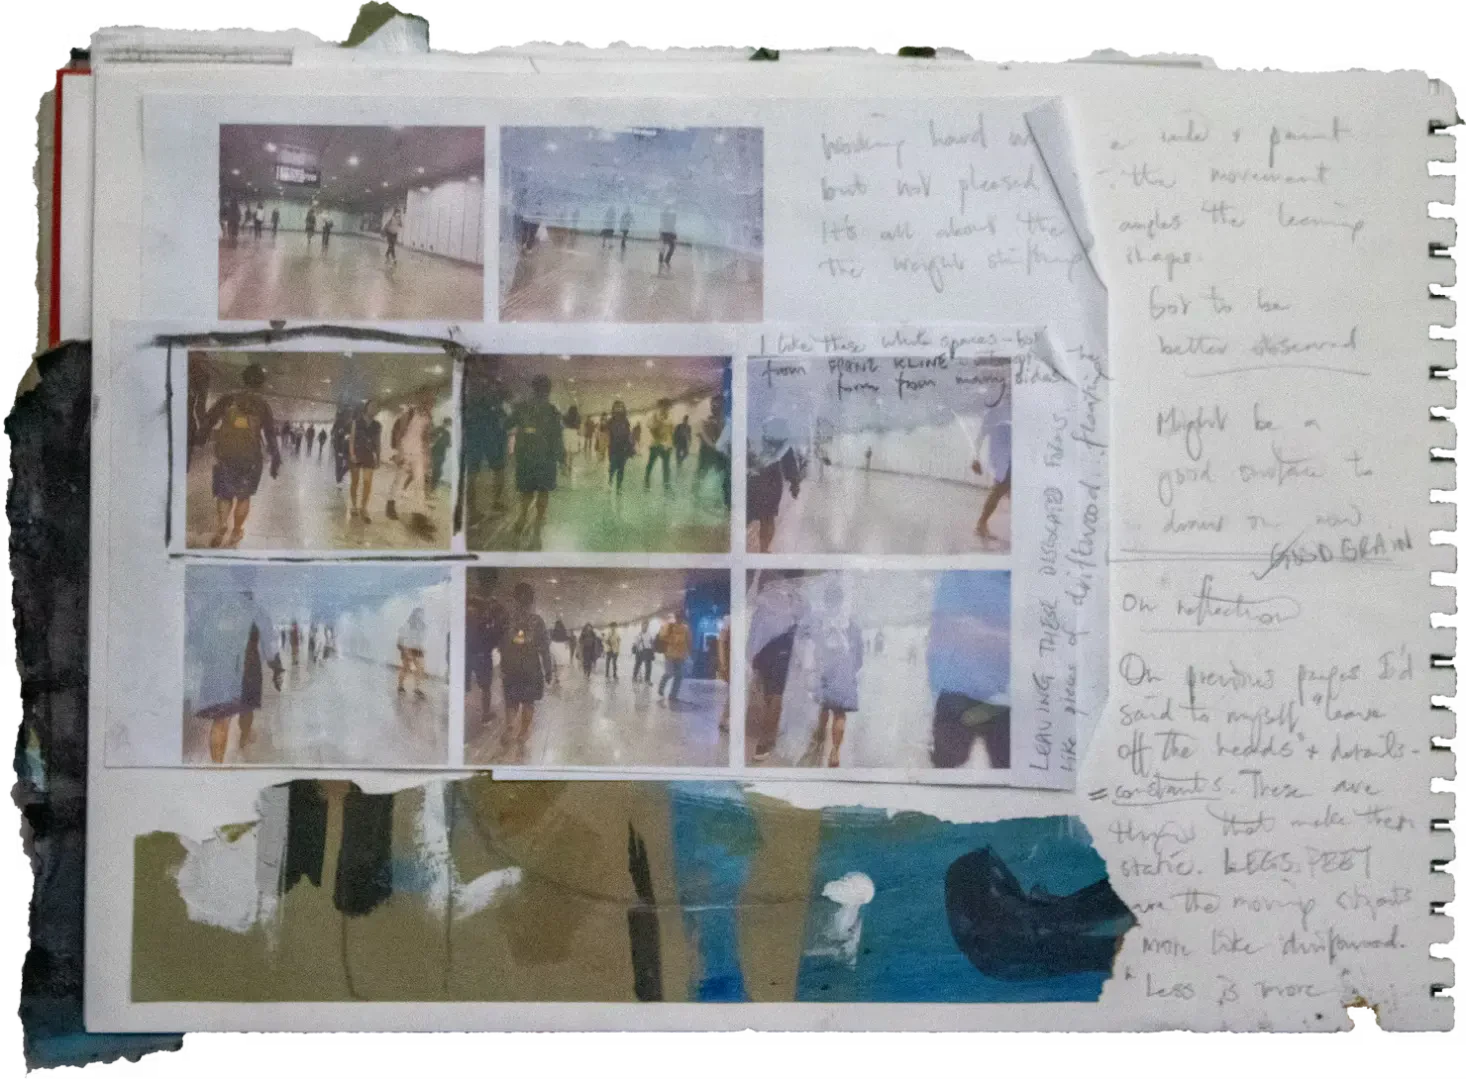 Working hard on
but not pleased
It's all about the
the weight shifting
a side & paint
the movement
angles the leaning
shape.
Got to be
better observed
I like these white spaces - bot
from FRANZ KLINE
form from many sides
LEAVING THESE DISLOCATED FORMS
like pieces of driftwood. floating
Might be a
good surface to
draw on now
GOOD GRAIN
On reflection
On previous pages I'd
said to myself "leave
off the heads" + details -
= constants. These are
things that make them
static. LEGS. FEET
are the moving objects
more like driftwood.
"Less is more